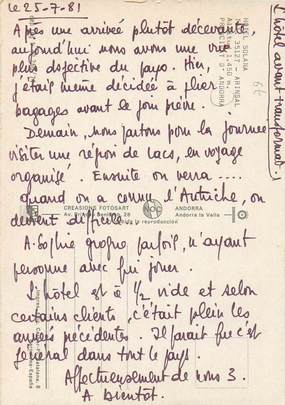 le 25-7-81
Après une arrivée plutôt décevante,
aujourd'hui nous avons une vision
plus objective du pays. Hier,
j'étais même décidée à plier
bagages avant le jour prévu.
Demain, nous partons pour la journée
visiter une région de lacs, en voyage
organisé. Ensuite on verra ....
quand on a connu l'Autriche, on
devient difficile.
A-Sophie grogne parfois, n'ayant
personne avec qui jouer.
L'hôtel est à 1/2 vide et selon
certains clients, c'était plein les
années précédentes. Il paraît que c'est
général dans tout le pays.
Affectueusement de nous 3.
A bientôt.
(l'hôtel avant transformat.)
HOTEL SOLANA
PRINCIPAT D'ANDORRA
6€
CREACIONS FOTOSART
ANDORRA
Andorra la Vella